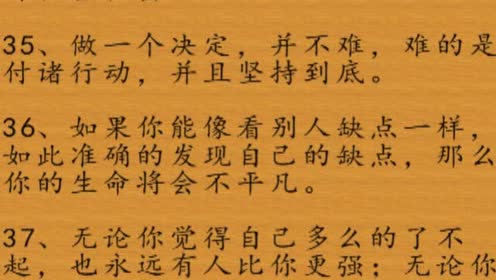 35、做一个决定，并不难，难的是
付诸行动，并且坚持到底。
36、如果你能像看别人缺点一样，
如此准确的发现自己的缺点，那么
你的生命将会不平凡。
37、无论你觉得自己多么的了不
起，也永远有人比你更强；无论你